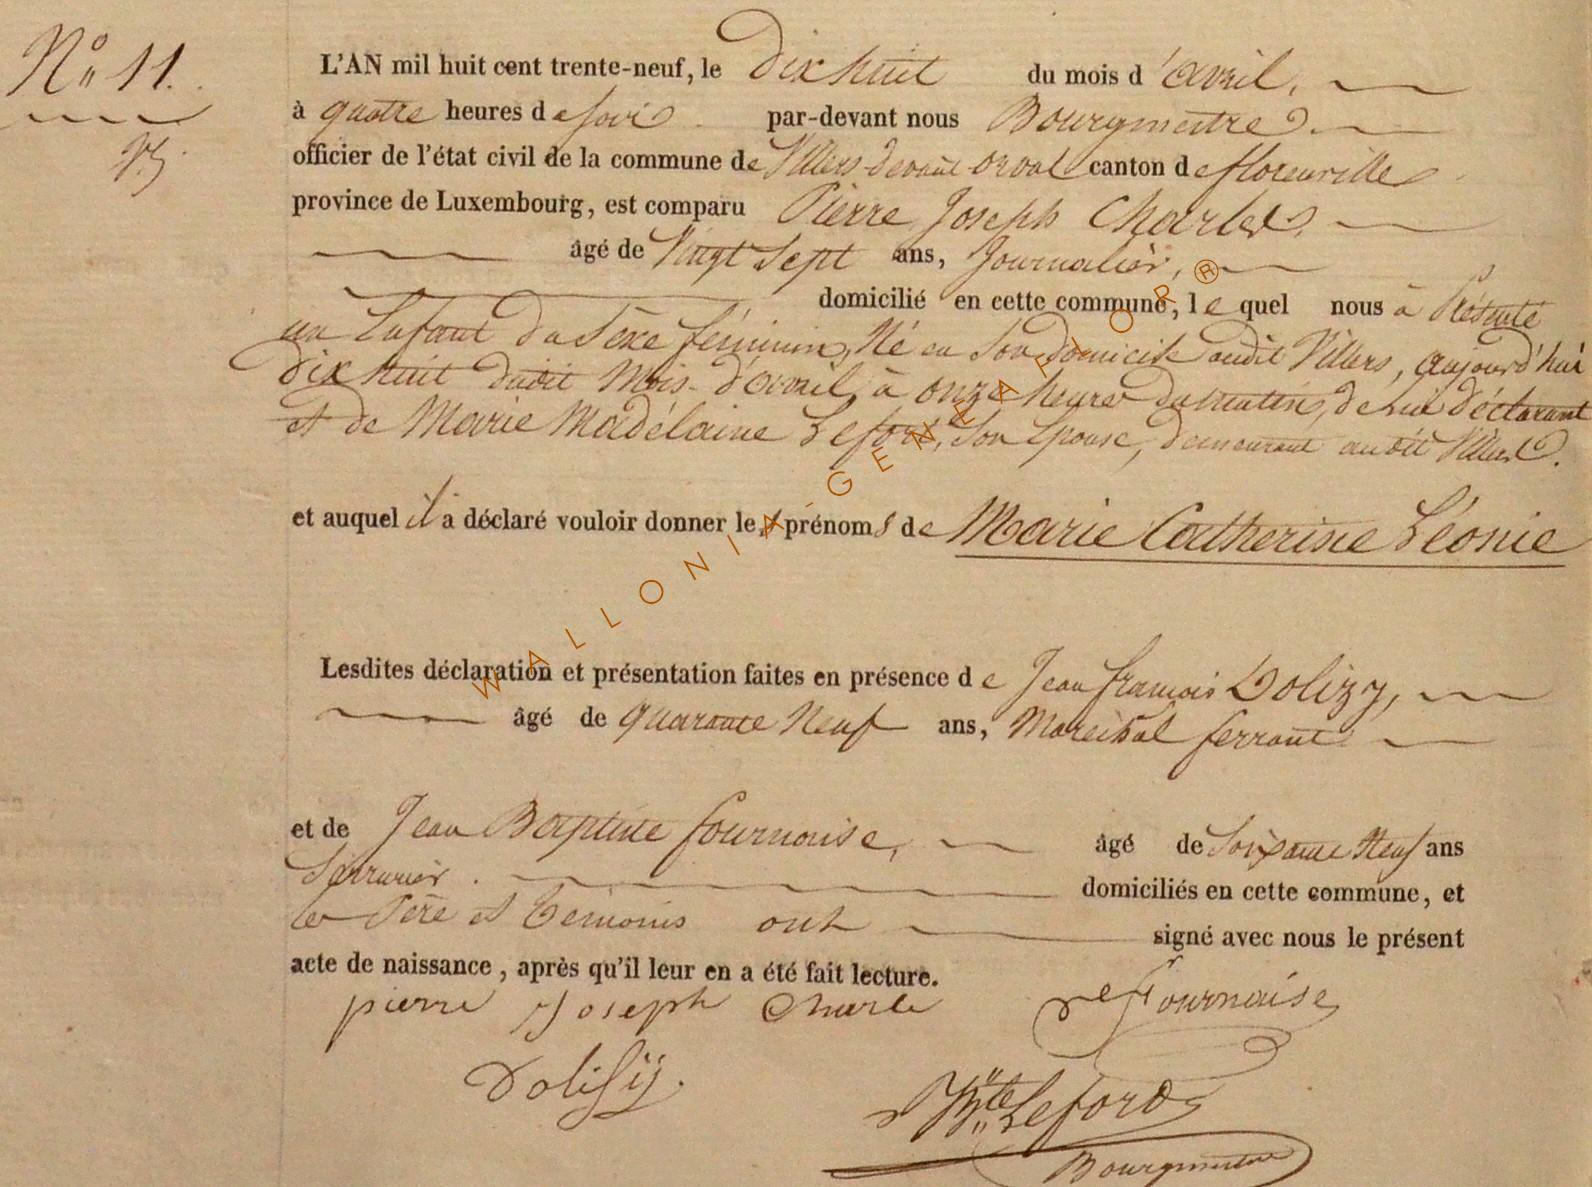 N° 11.
L'AN mil huit cent trente-neuf, le Dix huit du mois d'avril,
à quatre heures de soir par-devant nous Bourgmestre
officier de l'état civil de la commune de Villers devant orval canton de florenville
province de Luxembourg, est comparu Pierre Joseph Charles,
âgé de Vingt Sept ans, Journalier,
domicilié en cette commune, lequel nous à Présenté
un Enfant du Sexe féminin, Né en Son Domicile audit Villers, aujourd'hui
Dix huit dudit Mois d'avril, à onze heures du matin, de lui déclarant
et de Marie Madélaine Leforé, Son Epouse, demeurant audit Villers.
et auquel il a déclaré vouloir donner les prénoms de Marie Catherine Léonie
Lesdites déclaration et présentation faites en présence de Jean françois Dolizy,
âgé de quarante Neuf ans, Maréchal ferrant
et de Jean Baptiste fournaise, âgé de Soixante Neuf ans
Serrurier. domiciliés en cette commune, et
les Père et Témoins ont signé avec nous le présent
acte de naissance, après qu'il leur en a été fait lecture.
pierre Joseph Charle Fournaise
Dolisy
Leforé
Bourgmestre
WALLONIA-GENEAFLOR®